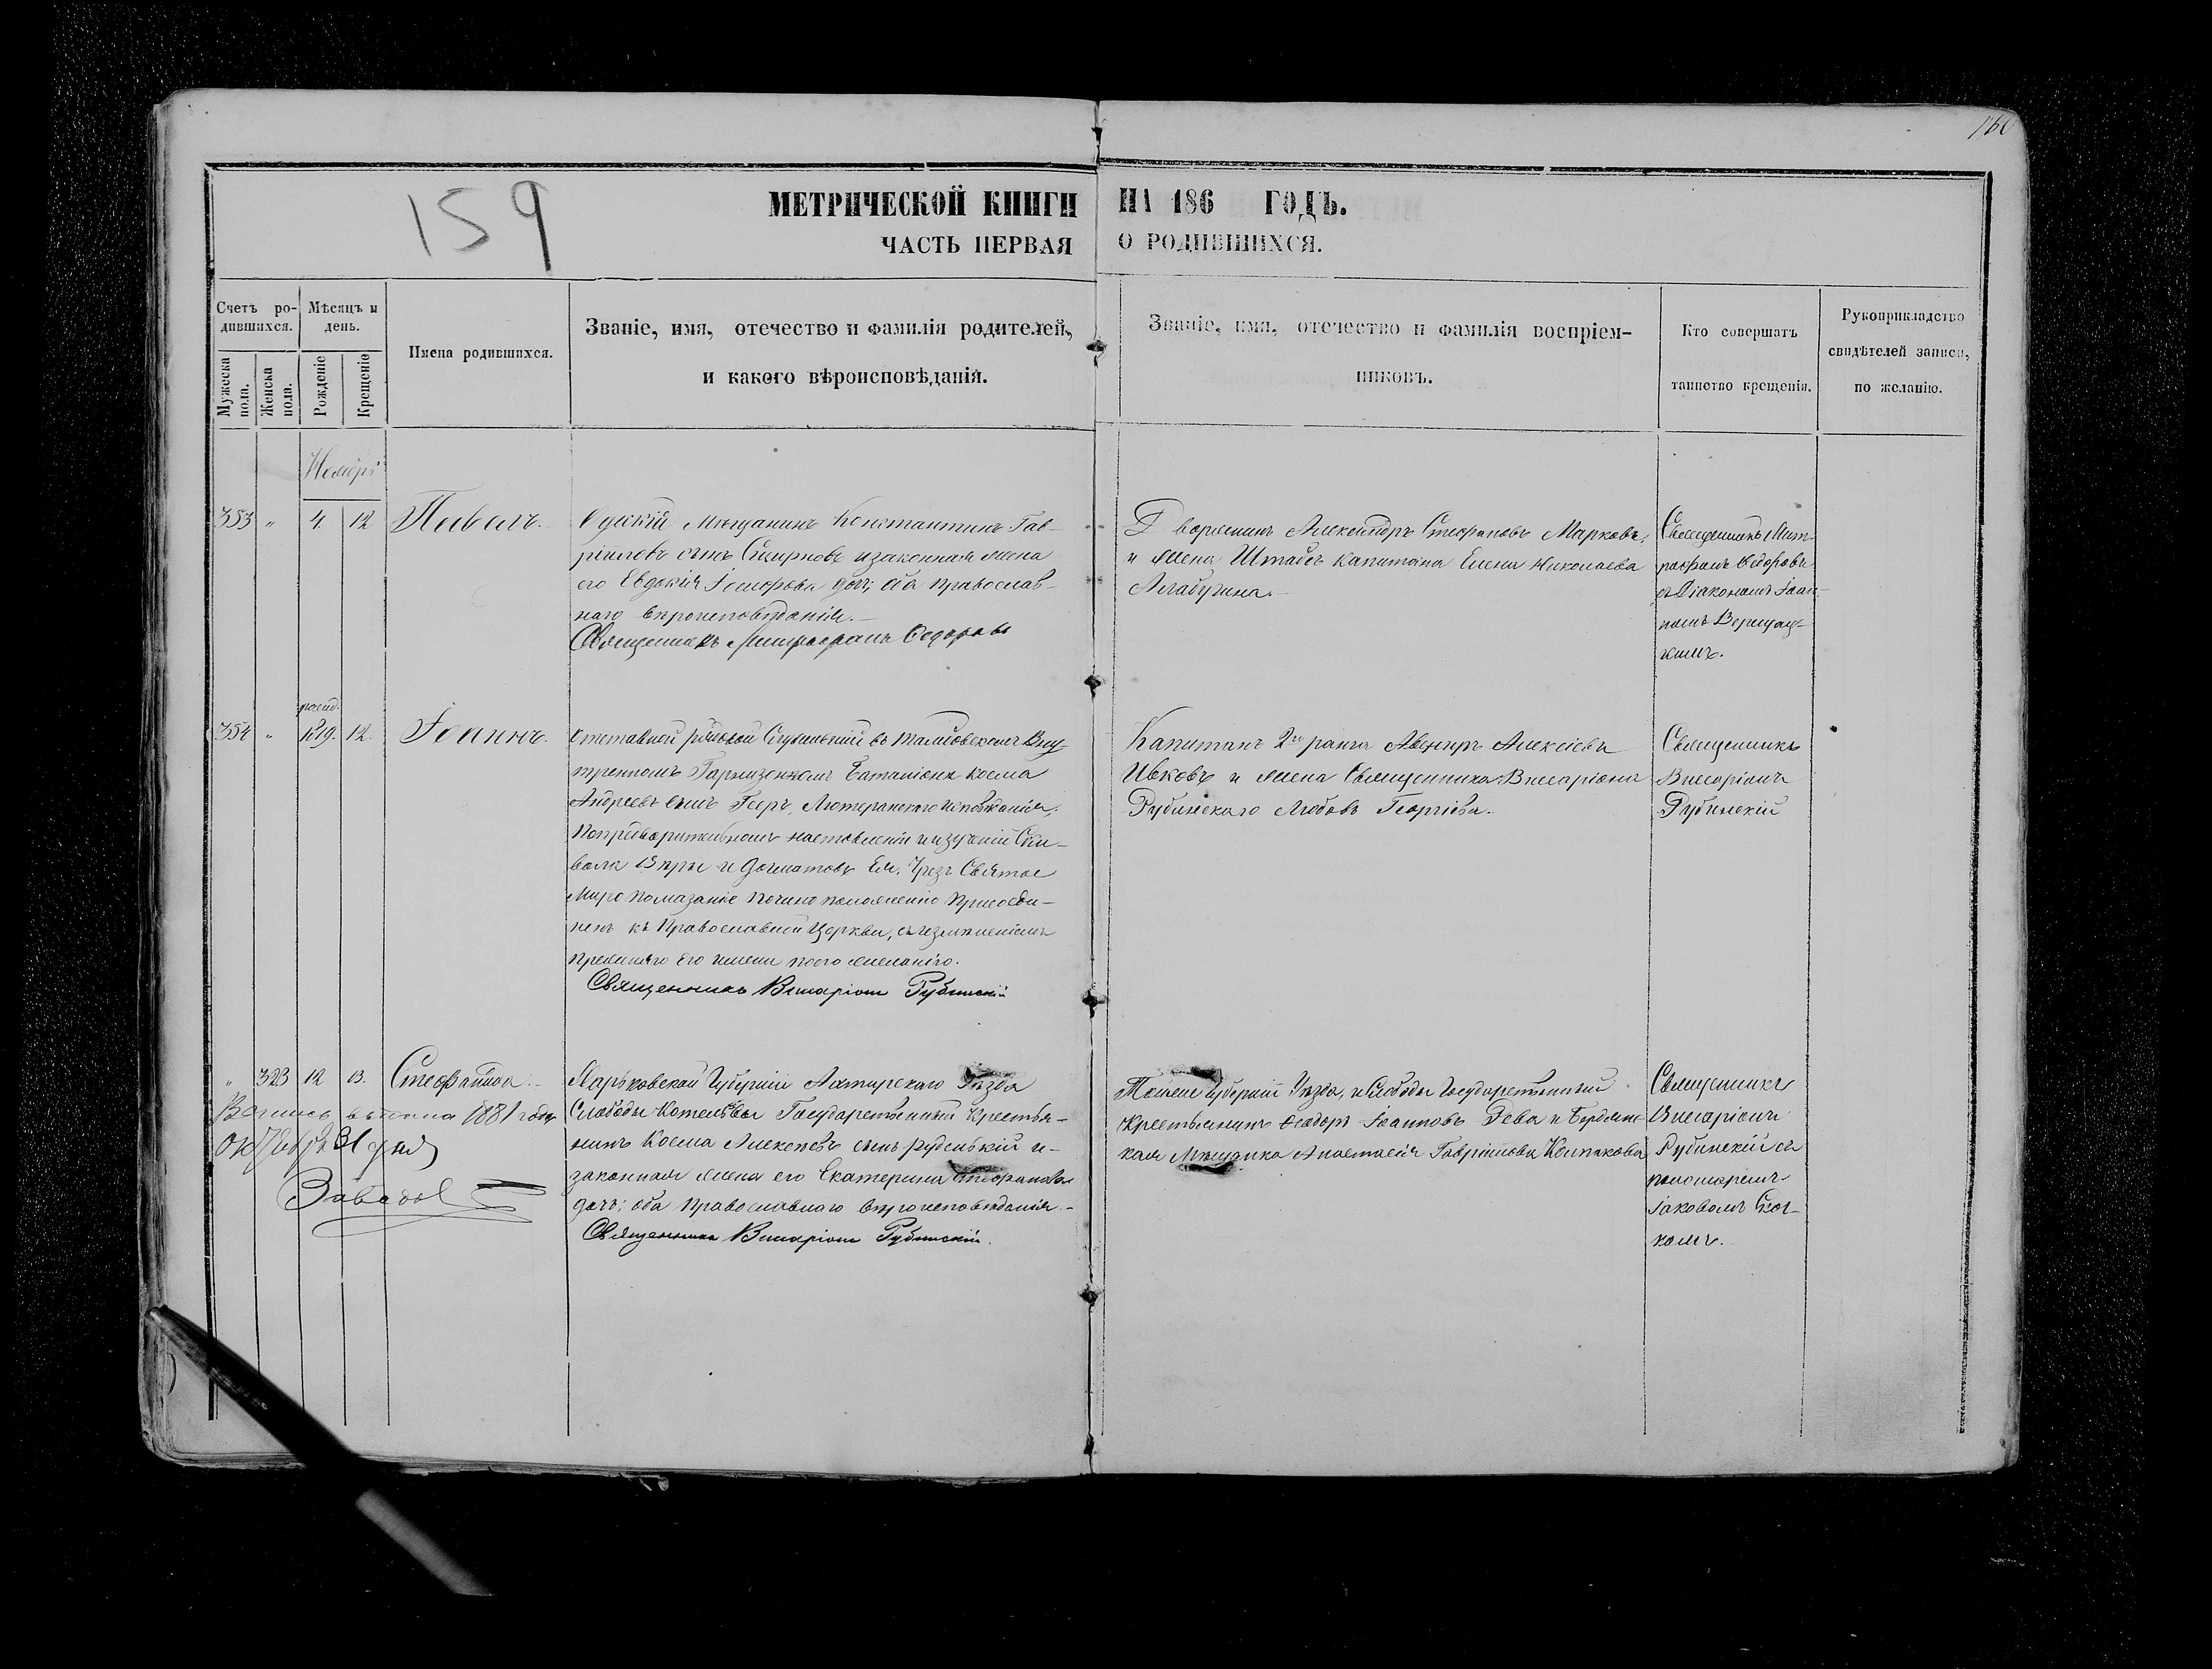 160
159
МЕТРИЧЕСКОЙ КНИГИ НА 186 ГОДЪ.
ЧАСТЬ ПЕРВАЯ О РОДИВШИХСЯ.
Счетъ ро-
дившихся.
Мужеска пола.
Женска пола.
Мѣсяцъ и
день.
Рожденіе
Крещеніе
Имена родившихся.
Званіе, имя, отечество и фамилія родителей,
и какого вѣроисповѣданія.
Званіе, имя, отечество и фамилія воспріем-
никовъ.
Кто совершатъ
таинство крещенія.
Рукоприкладство
свидѣтелей записи,
по желанію.
Ноябрь
353 " 4 12 Павелъ.
Мѣщанинъ Константинъ Гав-
ріиловъ сынъ Смирновъ и законная жена
его Евдокія дочь; оба православ-
наго вѣроисповѣданія.
Священникъ Митрофанъ Федоровъ
Дворянинъ Александръ Стефановъ Марковъ,
и жена Штабсъ Капитана Елена Николаева
Алабугина.
Священникъ Мит-
рофанъ Федоровъ
съ Діакономъ Іоан-
номъ
кимъ.
354 " 12 Іоаннъ.
Отставной рядовой Служившій въ Тамбовскомъ Вну-
треннемъ Гарнизонномъ Баталіоне Косма
Андреевъ сынъ Лютеранского исповѣданія,
По предварительномъ наставленіи и изученіи Сим-
вола Вѣры и Догматовъ Ея, Чрезъ Святое
Миро помазаніе по чиноположенію Присоеди-
ненъ къ Православной Церкви, съ измѣненіемъ
прежняго Его имени по его желанію.
Священникъ Висаріонъ Рубинскій
Капитанъ 2го ранга Авениръ Алексіевъ
Ивковъ и жена Священника Висаріона
Рубинскаго Любовь Георгіева.
Священникъ
Висаріонъ
Рубинскій
" 323 12 13. Стефанида.
Харьковской Губерніи Ахтырскаго Уѣзда
Слободы Котельвы Государственный Крестья-
нинъ Косма Алексѣевъ сынъ Руденькій и
законная жена его Екатерина Стефанова
дочь; оба православнаго вѣроисповѣданія.
Священникъ Висаріонъ Рубинскій.
Тойже Губерніи Уѣзда, и Слободы Государственный
крестьянинъ Феодоръ Іоанновъ Рева и Бердянс-
кая Мѣщанка Анастасія Гавріилова Колпакова
Священникъ
Висаріонъ
Рубинскій съ
пономаремъ
Іаковомъ
комъ.
1881 года
Октября 31 дня